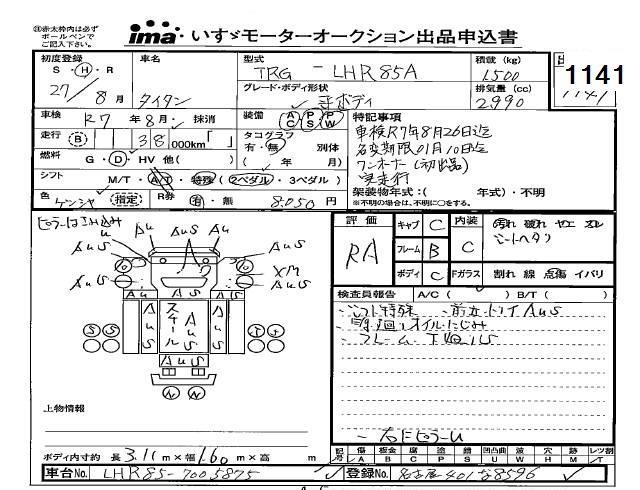 ㊟赤太枠内は必ず
ボールペンで
ご記入下さい。
ima いすゞモーターオークション出品申込書
初度登録 S・H・R 27/8月
車名 タイタン
型式 TRG-LHR85A
積載(kg) 1500
1141
グレード・ボディ形状 平ボディ
排気量(cc) 2990
車検 R7年8月・抹消
装備 AC PS PW
特記事項
車検R7年8月26日迄
名変期限01月10日迄
ワンオーナー(初出品)
実走行
走行(B) 38,000km「 」
タコグラフ 有・無 別体
燃料 G・D・HV 他( )
( 年 月)
シフト M/T・A/T・特殊(2ペダル・3ペダル)
架装物年式:( 年式)・不明
※不明の場合は、不明に〇をする。
色 ゲンシャ (指定) R券 有・無 8,050円
評価 RA
キャブ C
フレーム B
ボディ C
内装 C
汚れ 破れ ヤエ スレ
シートヘタリ
Fガラス 割れ 線 点傷 イバリ
検査員報告 A/C( ) B/T( )
・シフト特殊
AUS
・フレーム
・右ピラーU
ピラーはさH込み
U
AU
AUS
AU
AUS
AUS
XM
AUS
AU AUS
AUS スチール AUS AUS
AUS
上物情報
ボディ内寸約 長3.11m×幅1.60m×高 m
記号 傷A 板金B 腐C 塗P 錆S 凹凸曲U 波W 穴H 跡M レツ割T
車台No. LHR85-7005875
登録No. 名古屋401な8596